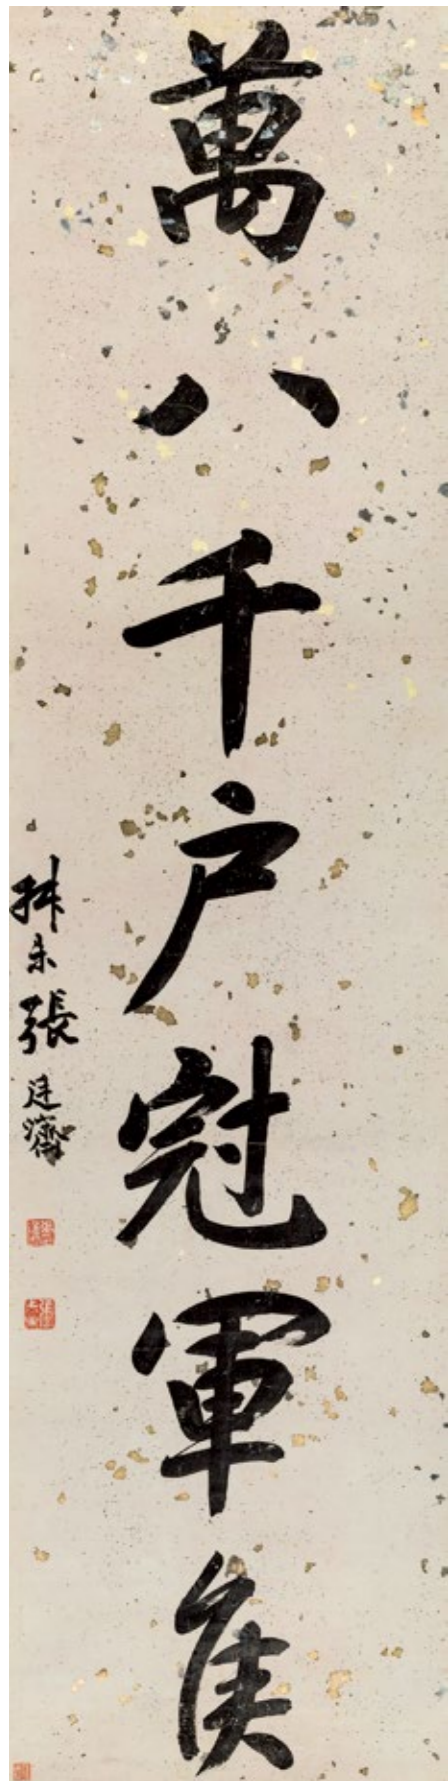 萬八千户冠軍侯
叔未張廷濟